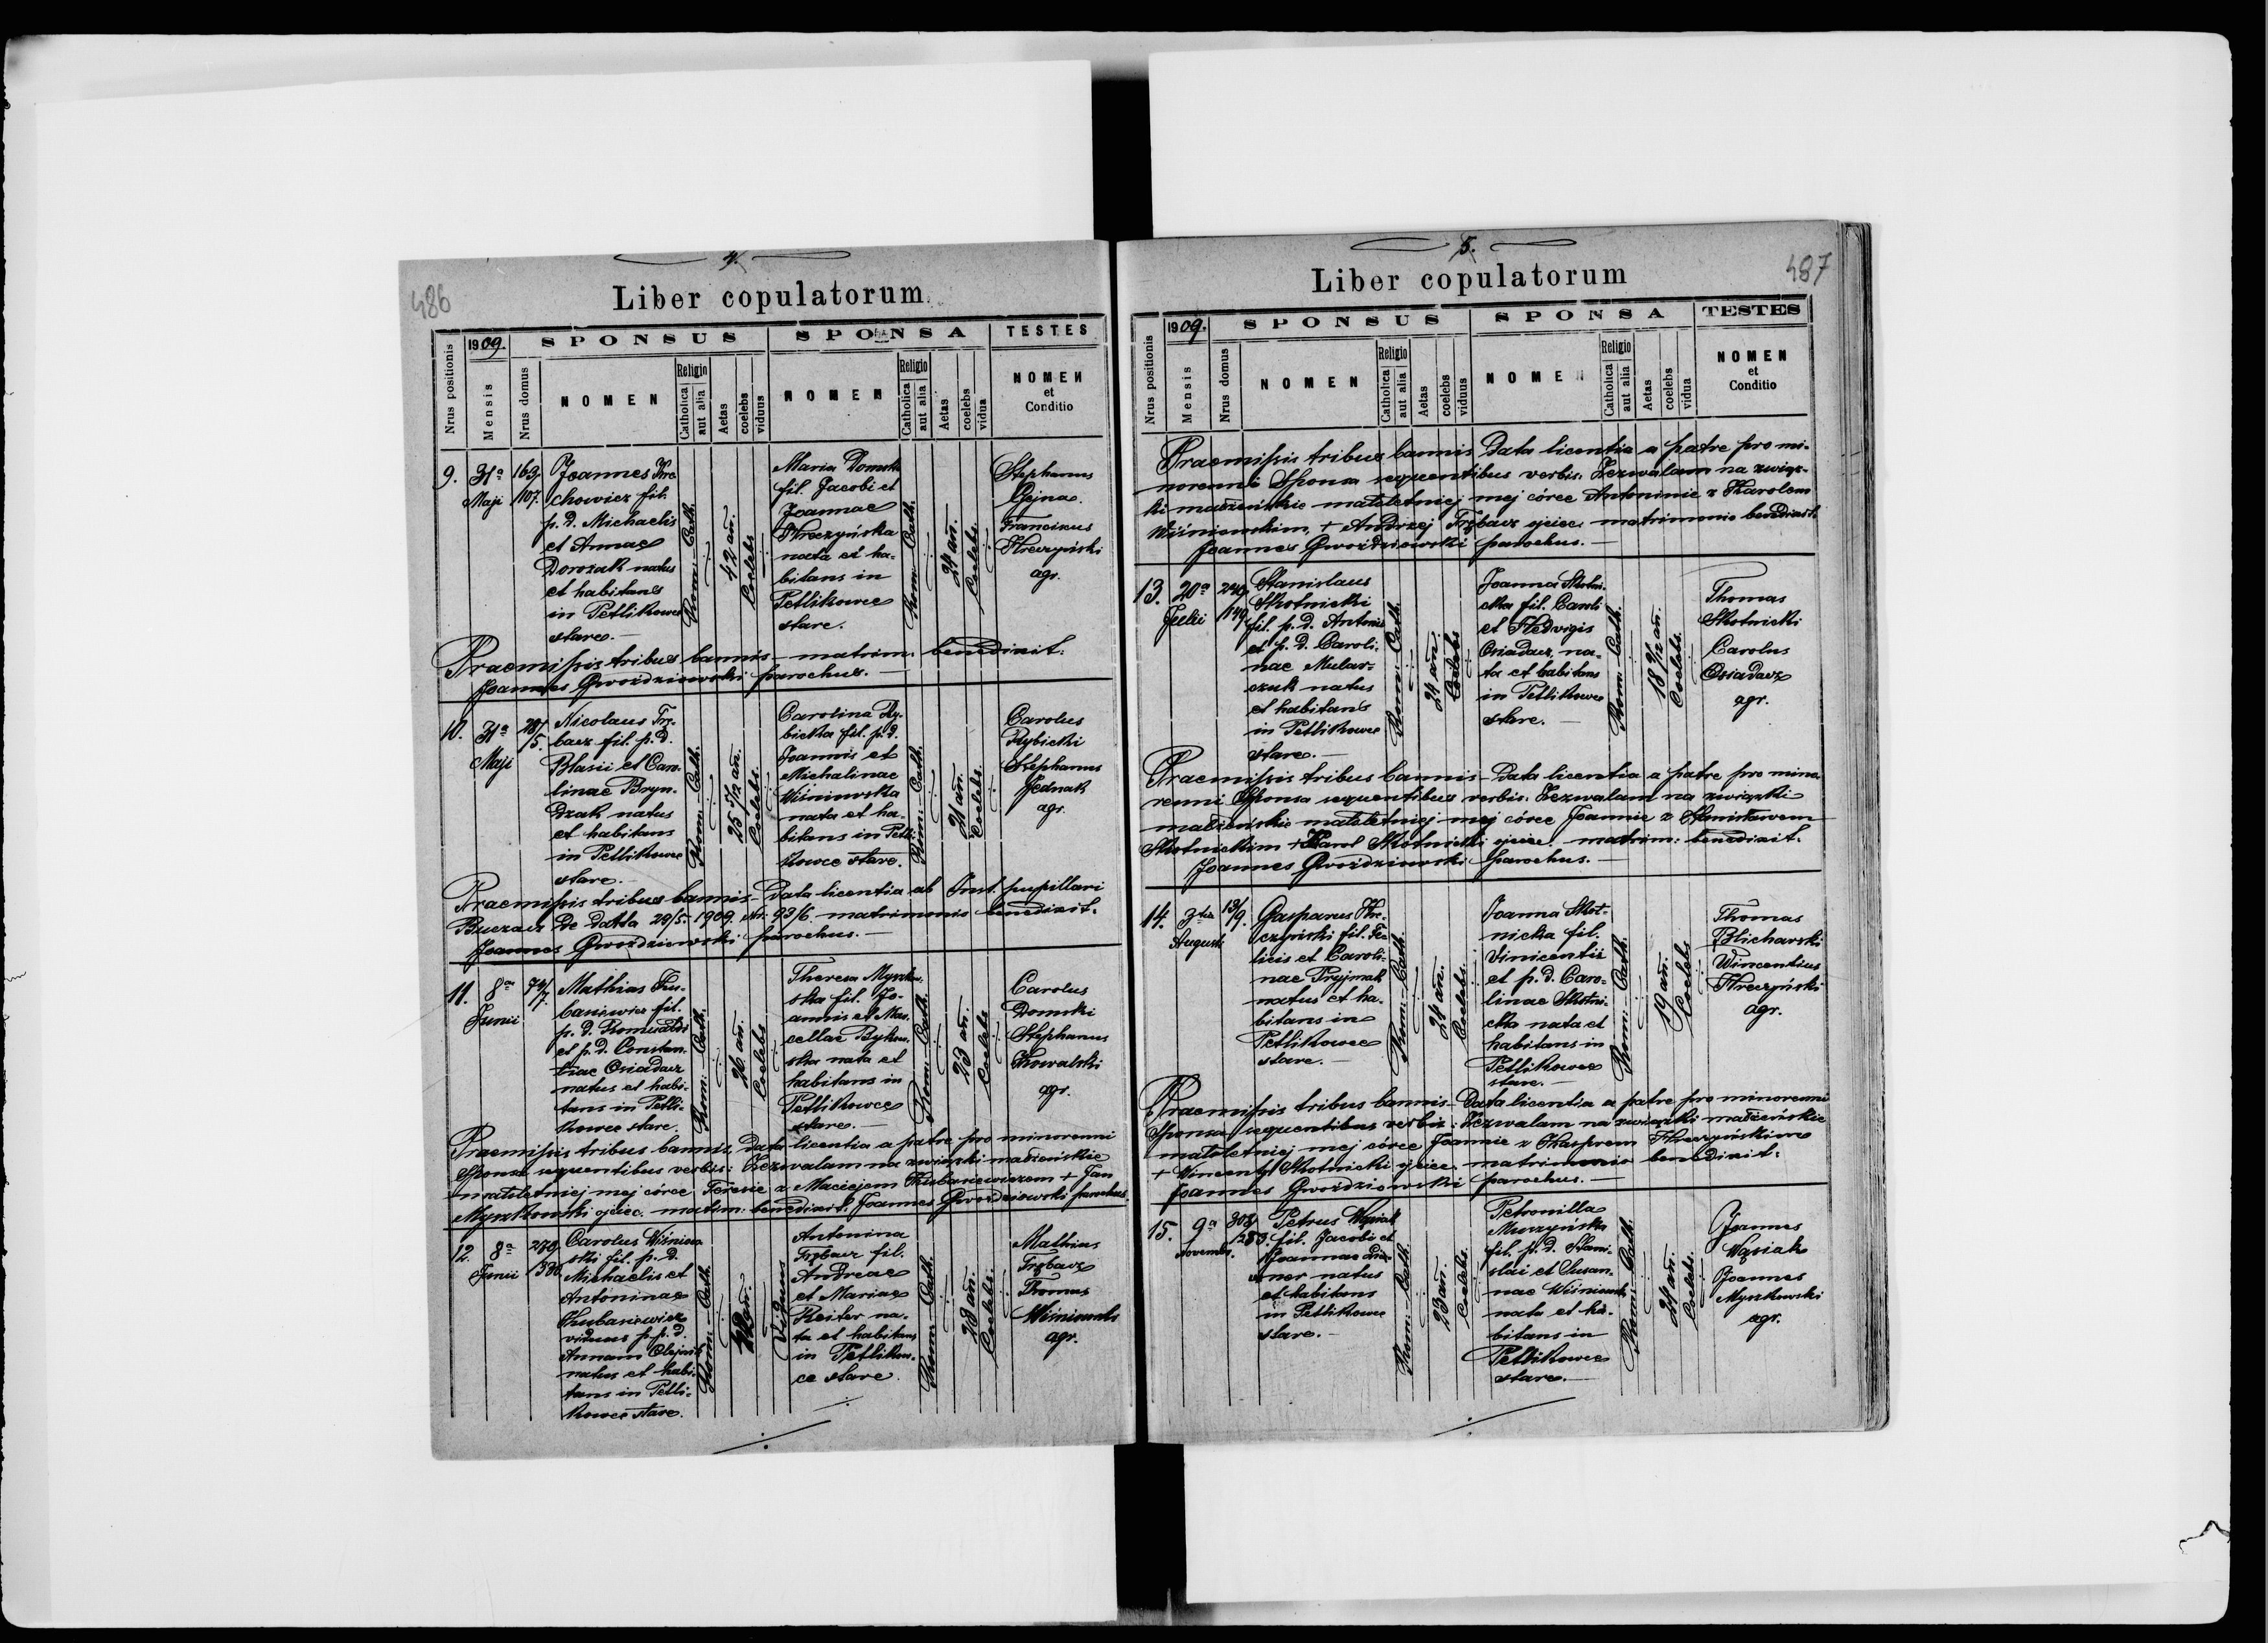 486
4.
Liber copulatorum
Nrus positionis
1909.
Mensis
Nrus domus
SPONSUS
NOMEN
Religio
Catholica
aut alia
Aetas
coelebs
viduus
SPONSA
NOMEN
Religio
Catholica
aut alia
Aetas
coelebs
vidua
TESTES
NOMEN
et
Conditio
9.
31a
Maji
163/
107.
Joannes Kre
chowicz fil.
p. d. Michaelis
et Annae
Dorozak natus
et habitans
in Petlikowce
stare.
Rom: Cath.
42 an.
Coelebs
Maria Domska
fil. Jacobi et
Joannae
Kreczyńska
nata et ha-
bitans in
Petlikowce
stare.
Rom: Cath.
24 an.
Coelebs.
Stephanus
Gojna.
Franciscus
Kreczyński
agr.
Praemissis tribus bannis - matrim: benedixit:
Joannes Gwoździowski parochus.
10.
31a
Maji
28/
5.
Nicolaus Trę-
bacz fil. p. d.
Blasii et Caro-
linae Bryn-
dzak natus
et habitans
in Petlikowce
stare.
Rom: Cath.
25 5/12 an.
Coelebs.
Carolina Ry-
bicka fil. p. d.
Joannis et
Michalinae
Wiśniowska
nata et ha-
bitans in Petli-
kowce stare.
Rom: Cath.
21 an.
Coelebs.
Carolus
Rybicki
Stephanus
Jednak
agr.
Praemissis tribus bannis - Data licentia ab Inst. pupillari
Buczacz de datta 29/5 - 1909. Nr: 93/6. matrimonio benedixit.
Joannes Gwoździowski parochus.
11.
8a
Junii
74/
7.
Mathias Ku-
basiewicz fil.
p. d. Romualdi
et p. d. Constan-
tiae Osiadacz
natus et habi-
tans in Petli-
kowce stare.
Rom: Cath.
26 an.
Coelebs
Theresa Myszkow-
ska fil. Jo-
annis et Mar-
cellae Bykow-
ska nata et
habitans in
Petlikowce
stare.
Rom: Cath.
23 an.
Coelebs
Carolus
Domski
Stephanus
Kowalski
agr.
Praemissis tribus bannis. Data licentia a patre pro minorenni
Sponsa sequentibus verbis: Zezwalam na związki małżeńskie
małoletniej mej córce Teresie z Maciejem Kubasiewiczem + Jan
Myszkowski ojciec. matrim: benedixit: Joannes Gwoździowski parochus.
12.
8a
Junii
279/
Carolus Wiśniow-
ski fil. p. d.
Michaelis et
Antoninae
Kubasiewicz
viduus p. p. d.
Annam Olejnik
natus et habi-
tans in Petli-
kowce stare.
Rom: Cath.
Viduus
Antonina
Trębacz fil.
Andreae
et Mariae
Reiter na-
ta et habitans
in Petlikow-
ce stare.
Rom: Cath.
23 an.
Coelebs.
Mathias
Trębacz
Thomas
Wiśniowski
agr.
487
5.
Liber copulatorum
Nrus positionis
1909.
Mensis
Nrus domus
SPONSUS
NOMEN
Religio
Catholica
aut alia
Aetas
coelebs
viduus
SPONSA
NOMEN
Religio
Catholica
aut alia
Aetas
coelebs
vidua
TESTES
NOMEN
et
Conditio
Praemissis tribus bannis Data licentia a patre pro mi-
norenni Sponsa sequentibus verbis. Zezwalam na związ-
ki małżeńskie małoletniej mej córce Antoninie z Karolem
Wiśniowskim, + Andrzej Trębacz ojciec. matrimonio benedixit.
Joannes Gwoździowski parochus.
13.
20a
Julii
240/
149.
Stanislaus
Skotnicki
fil. p. d. Antonii
et p. d. Caroli-
nae Mular-
czuk natus
et habitans
in Petlikowce
stare.
Rom: Cath.
24 an.
Coelebs
Joanna Skotni-
cka fil. Caroli
et Hedvigis
Osiadacz na-
ta et habitans
in Petlikowce
stare.
Rom: Cath.
Coelebs.
Thomas
Skotnicki
Carolus
Osiadacz
agr.
Praemissis tribus bannis - Data licentia a patre pro mino-
renni Sponsa sequentibus verbis: Zezwalam na związki
małżeńskie małoletniej mej córce Joannie z Stanisławem
Skotnickim + Karol Skotnicki ojciec. matrim: benedixit.
Joannes Gwoździowski parochus.
14.
3tia
Augusti
13/
9.
Gasparus Kre-
czyński fil. Fe-
licis et Caroli-
nae Pryjmak
natus et ha-
bitans in
Petlikowce
stare.
Rom: Cath.
24 an.
Coelebs.
Joanna Skot-
nicka fil.
Vinicentii
et p. d. Caro-
linae Skotni-
cka nata et
habitans in
Petlikowce
stare.
Rom: Cath.
19 an.
Coelebs
Thomas
Blicharski
Wincentius
Kreczyński
agr.
Praemissis tribus bannis - Data licentia a patre pro minorenni
Sponsa sequentibus verbis: Zezwalam na związki małżeńskie
małoletniej mej córce Joannie z Kasprem Kreczyńskim
+ Wincenty Skotnicki ojciec. matrimonio benedixit:
Joannes Gwoździowski parochus.
15.
9a
Novembr.
308/
283.
Petrus Wąsiak
fil. Jacobi et
Joannae
natus
et habitans
in Petlikowce
stare.
Rom: Cath.
23 an.
Coelebs.
Petronilla
Murzyńska
fil. p. d. Stani-
slai et Susan-
nae Wiśniowska
nata et ha-
bitans in
Petlikowce
stare.
Rom: Cath.
24 an.
Coelebs.
Joannes
Wąsiak
Joannes
Myszkowski
agr.